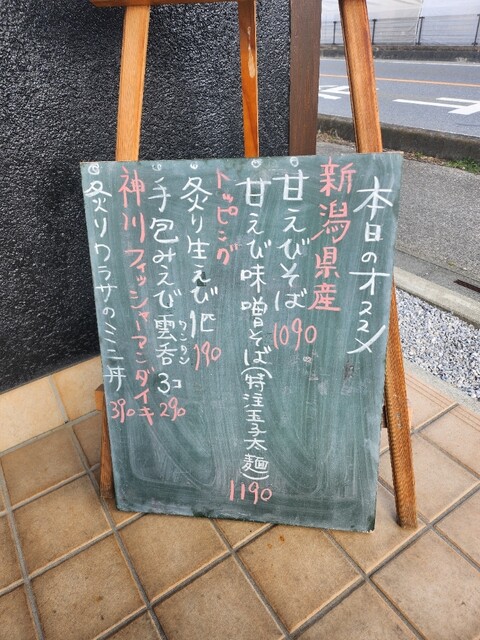 本日のオススメ
新潟県産
甘えびそば 1090
甘えび味噌そば(特注玉子太麺) 1190
トッピング
炙り生えび1匹 190
手包みえび雲呑3コ 290
ワンタン
神川フィッシャーマンダイキ
炙りワラサのミニ丼 390